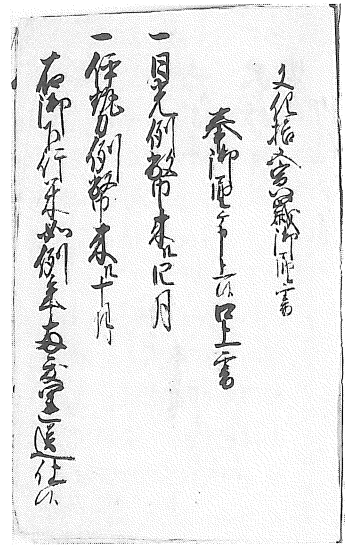 文化拾五寅歳御願書
奉御願申上候口上書
一日光例幣来ル四月
一伊勢例幣来ル十月
右御下行米如例年両度仕候